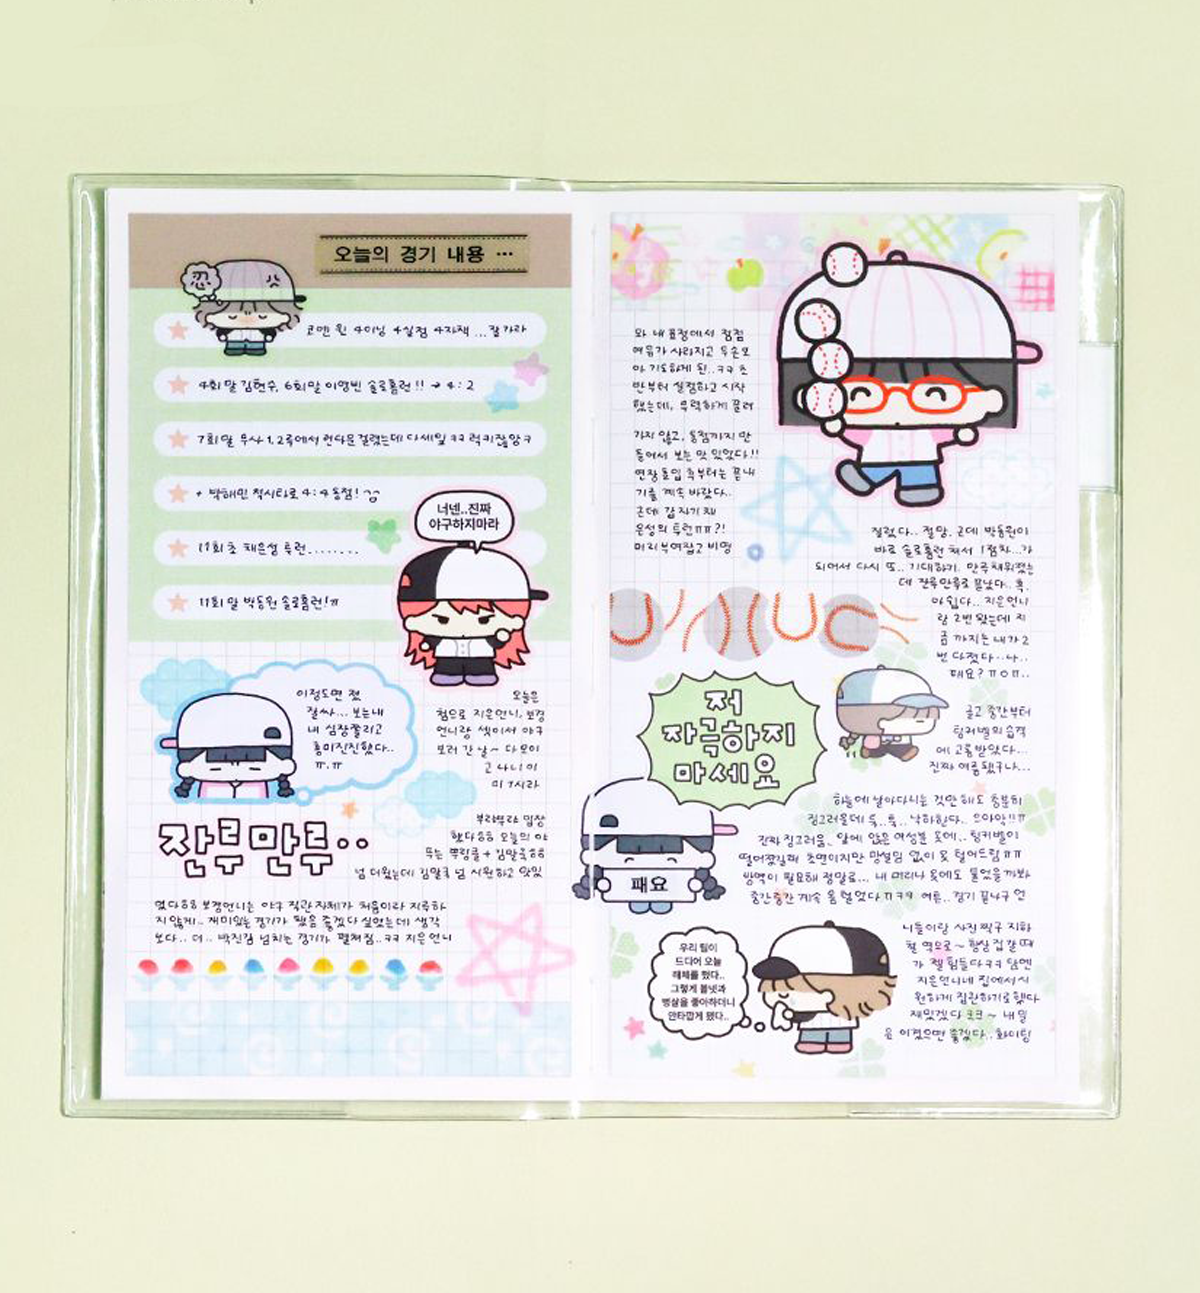 오늘의 경기 내용 …
忍
코엔 윈 4이닝 4실점 4자책 ...잘가라
4회말 김현수, 6회말 이영빈 솔로홈런!! → 4:2
7회말 무사 1,2루에서 런다운걸렸는데 다세잎 ㅋㅋ 럭키잖앙ㅋ
+ 박해민 적시타로 4:4 동점!
11회초 채은성 투런........
11회말 박동원 솔로홈런!ㅠ
너넨..진짜
야구하지마라
이정도면 졌
잘싸... 보는내
내 심장쫄리고
흥미진진했다..
ㅠ.ㅠ
잔루만루..
오늘은
첨으로 지은언니, 보경
언니랑 셋이서 야구
보러 간 날~ 다모이
고나니이
미 7시라
부랴부랴 입장
했다ㅎㅎ 오늘의 야
푸는 뿌링클 + 김말국ㅎㅎ
넘 더웠는데 김말국 넘 시원하고 맛있
었다ㅎㅎ 보경언니는 야구 직관 자체가 처음이라 지루하
지 않게.. 재미있는 경기가 됐음 좋겠다 싶었는데 생각
보다.. 더.. 박진감 넘치는 경기가 펼쳐짐..ㅋㅋ 지은언니
와 내 표정에서 점점
여유가 사라지고 두손모
아 기도하게 된..ㅋㅋ 초
반부터 실점하고 시작
했는데, 무력하게 끌려
가지 않고, 동점까지 만
들어서 보는 맛 있었다!!
연장 돌입 후부터는 끝내
기를 계속 바랐다..
근데 갑자기 채
은성의 투런ㅠㅠ?!
머리부여잡고 비명
질렀다.. 절망. 근데 박동원이
바로 솔로홈런 쳐서 1점차...가
되어서 다시 또.. 기대하기. 만루채워졌는
데 잔루만루로 끝났다.. 흑.
아쉽다.. 지은언니
랑 2번 왔는데 지
금까지는 내가 2
번 다졌다..나..
패요? ㅠㅇㅠ..
글고 중간부터
팅커벨의 습격
에 고통받았다...
진짜 여름됐구나...
저
자극하지
마세요
패요
하늘에 날아다니는 것만 해도 충분히
징그러울데 툭.. 툭.. 낙하한다.. 으아악!!ㅠ
진짜 징그러움.. 앞에 앉은 여성분 옷에.. 팅커벨이
떨어졌길래 초면이지만 망설임 없이 옷 털어드림ㅠㅠ
방역이 필요해 정말로... 내 머리나 옷에도 붙었을까봐
중간중간 계속 몸 털었다ㄲㅋㅋ 여튼.. 경기 끝나구 언
니들이랑 사진 찍구 지하
철 역으로~ 항상 집 갈 때
가 젤 힘들다ㅋㅋ 담엔
지은언니네 집에서 시
원하게 집관하기로 했다
재밌겠다 ㅋㅋ~ 내일
은 이겼으면 좋겠다.. 화이팅
우리 팀이
드디어 오늘
해체를 했다..
그렇게 볼넷과
병살을 좋아하더니
안타깝게 됐다..